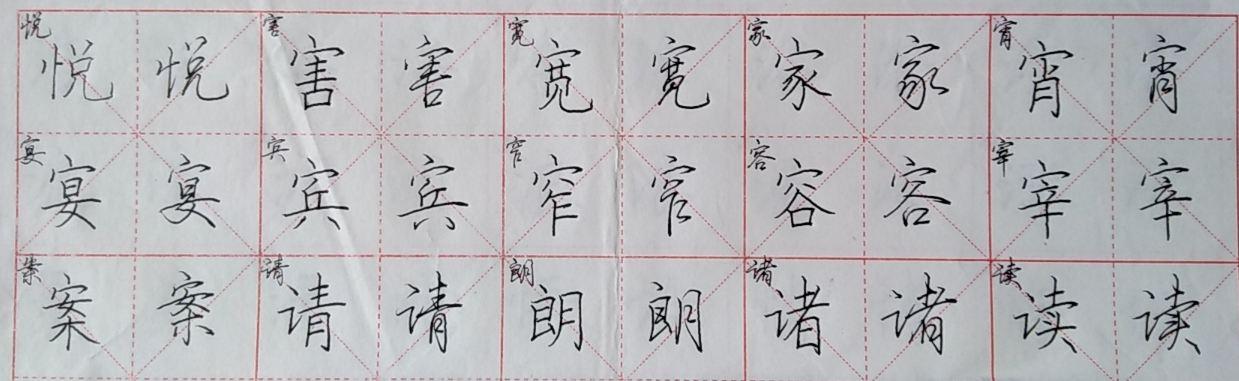 悦 悦 悦 害 害 害 宽 宽 宽 家 家 家 宵 宵 宵
宴 宴 宴 宾 宾 宾 窄 窄 窄 容 容 容 宰 宰 宰
案 案 案 请 请 请 朗 朗 朗 诸 诸 诸 读 读 读